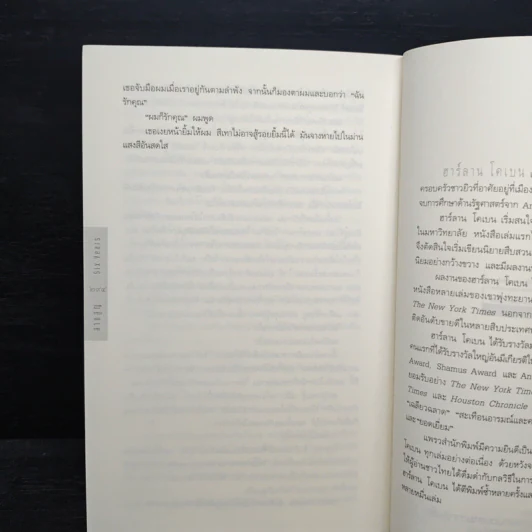 เธอจับมือผมเมื่อเราอยู่กันตามลำพัง จากนั้นก็มองตาผมและบอกว่า “ฉัน
รักคุณ”
“ผมก็รักคุณ” ผมพูด
เธอเงยหน้ายิ้มให้ผม สีเทาไม่อาจสู้รอยยิ้มนี้ได้ มันจางหายไปในม่าน
แสงสีอันสดใส
ฮาร์ลาน โคเบน
ครอบครัวชาวยิวที่อาศัยอยู่ที่เมือง
จบการศึกษาด้านรัฐศาสตร์จาก Am
ฮาร์ลาน โคเบน เริ่มสนใจ
ในมหาวิทยาลัย หนังสือเล่มแรก
จึงตัดสินใจเริ่มเขียนนิยายสืบสวน
นิยมอย่างกว้างขวาง และมีผลงาน
ผลงานของฮาร์ลาน โคเบน
หนังสือหลายเล่มของเขาพุ่งทะยาน
The New York Times นอกจาก
ติดอันดับขายดีในหลายสิบประเทศ
ฮาร์ลาน โคเบน ได้รับรางวัล
คนแรกที่ได้รับรางวัลใหญ่อันมีเกียรติ
Award, Shamus Award และ An
ยอมรับอย่าง The New York Tim
Times และ Houston Chronicle
“เฉลียวฉลาด” “สะเทือนอารมณ์และ
และ “ยอดเยี่ยม”
แพรวสำนักพิมพ์มีความยินดีเป็น
โคเบน ทุกเล่มอย่างต่อเนื่อง ด้วยหวัง
ให้ผู้อ่านชาวไทยได้ดื่มด่ำกับกลวิธีในการ
ฮาร์ลาน โคเบน ได้ตีพิมพ์ซ้ำหลายครั้งและ
หลายหมื่นเล่ม